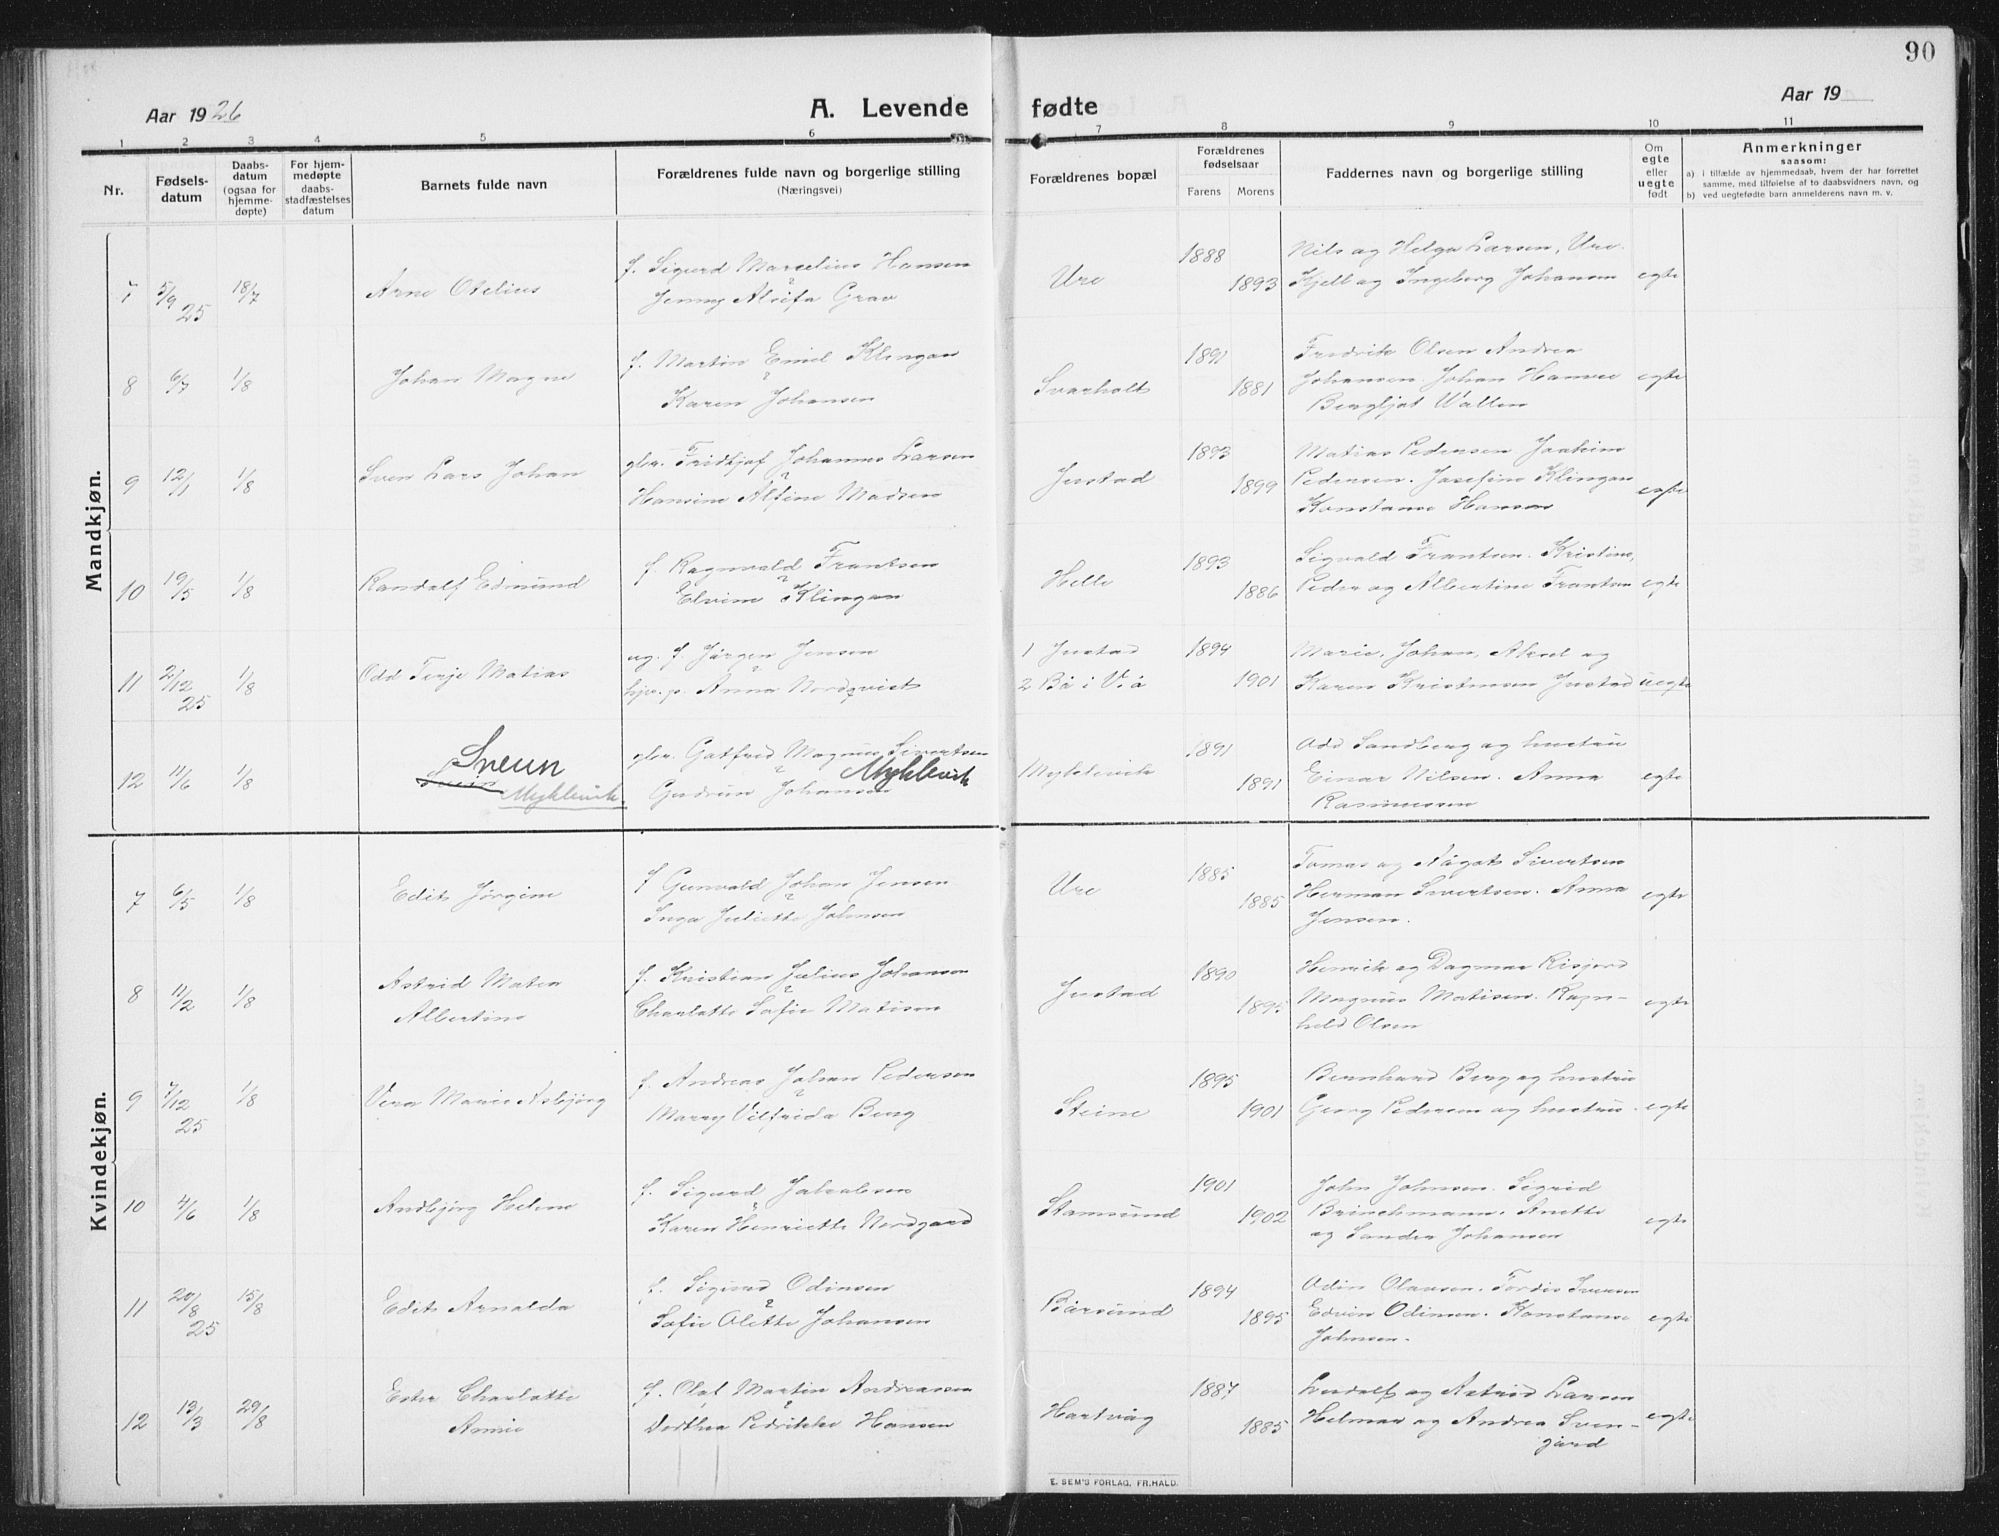 90
Aar 1926
A. Levende fødte
Aar 19
1 2 3 4 5 6 7 8 9 10 11
Nr.
Fødsels-
datum
Daabs-
datum
(ogsaa for
hjemme-
døpte)
For hjem-
medøpte
daabs-
stadfæstelses
datum
Barnets fulde navn
Forældrenes fulde navn og borgerlige stilling
(Næringsvei)
Forældrenes bopæl
Forældrenes
fødselsaar
Farens Morens
Faddernes navn og borgerlige stilling
Om
egte
eller
uegte
født
Anmerkninger
saasom:
a) i tilfælde av hjemmedaab, hvem der har forrettet
samme, med tilføielse af to daabsvidners navn, og
b) ved uegtefødte barn anmelderens navn m. v.
Mandkjøn.
7 5/9 25 18/7 Arne Otelius
f. Sigurd Marcelius Hansen
Jenny Alsifa Grav
Ure 1888 1893
Nils og Helga Larsen, Ure.
Kjell og Ingeborg Johansen
egte
8 6/7 1/8 Johan Magne
f. Martin Emil Klingan
Karen Johansen
Svarholt 1891 1881
Fredrik Olsen Andrea
Johansen. Johan Hamre
Bergljot Wallen
egte
9 12/1 1/8 Sven Lars Johan
gbr. Fridtjof Johannes Larsen
Hansine Alfine Madsen
Justad 1893 1899
Matias Pedersen Joakim
Pedersen. Josefine Klingan
Konstanse Hansen
egte
10 19/5 1/8 Randolf Edmund
f. Ragnvald Frantsen
Elvine Klingan
Helle 1893 1886
Sigvald Frantsen. Kristine,
Peder og Albertine Frantsen
egte
11 2/12 25 1/8 Odd Terje Matias
ug. f. Jørgen Jensen
hjv. p. Anna Nordqvist
1 Justad
2 Bø i V.å
1894 1901
Marie, Johan, Aksel og
Karen Kristensen Justad
uegte
12 11/6 1/8 Svein
Sveun
Myklevik.
gbr. Gotfred Magnus Sivertsen
Myklevik
Gudrun Johansen
Myklevik 1891 1891
Odd Sandberg og hustru
Einar Nilsen. Anna
Rasmussen
egte
Kvindekjøn.
7 6/5 1/8 Edit Jørgine
f Gunvald Johan Jensen
Inga Juliette Johnsen
Ure 1885 1885
Tomas og Sivertsen
Herman Sivertsen. Anna
Jensen.
egte
8 11/2 1/8 Astrid Matea
Albertine
f. Kristian Julius Johansen
Charlotte Sofie Matisen
Justad 1890 1895
Henrik og Dagmar Risjord
Magnus Matisen. Ragn-
hild Olsen
egte
9 7/12 25 1/8 Vera Marie Asbjørg
f. Andreas Johan Pedersen
Marry Vilfrida Berg
Steine 1895 1901
Bernhard Berg og hustru
Georg Pedersen og hustru.
egte
10 4/6 1/8 Andbjørg Helene
f. Sigurd Jakobsen
Karen Henriette Nordgård
Stamsund 1901 1902
John Johnsen. Sigrid
Brinchmann. Anette
og Sandra Johansen
egte
11 20/8 25 15/8 Edit Arnalda
f. Sigurd Odinsen
Sofie Olette Johansen
Bårsund 1894 1895
Odin Olausen. Tordis Ivensen
Edvin Odinsen. Konstanse
Johnsen.
egte
12 13/3 29/8 Ester Charlotte
Annie
f. Olaf Martin Andreassen
Dorthea Pedrikke Hansen
Hartvåg 1887 1885
Ludolf og Astrid Larsen
Helmar og Andrea Sven-
gård
egte
E. SEM'S FORLAG, FR.HALD.